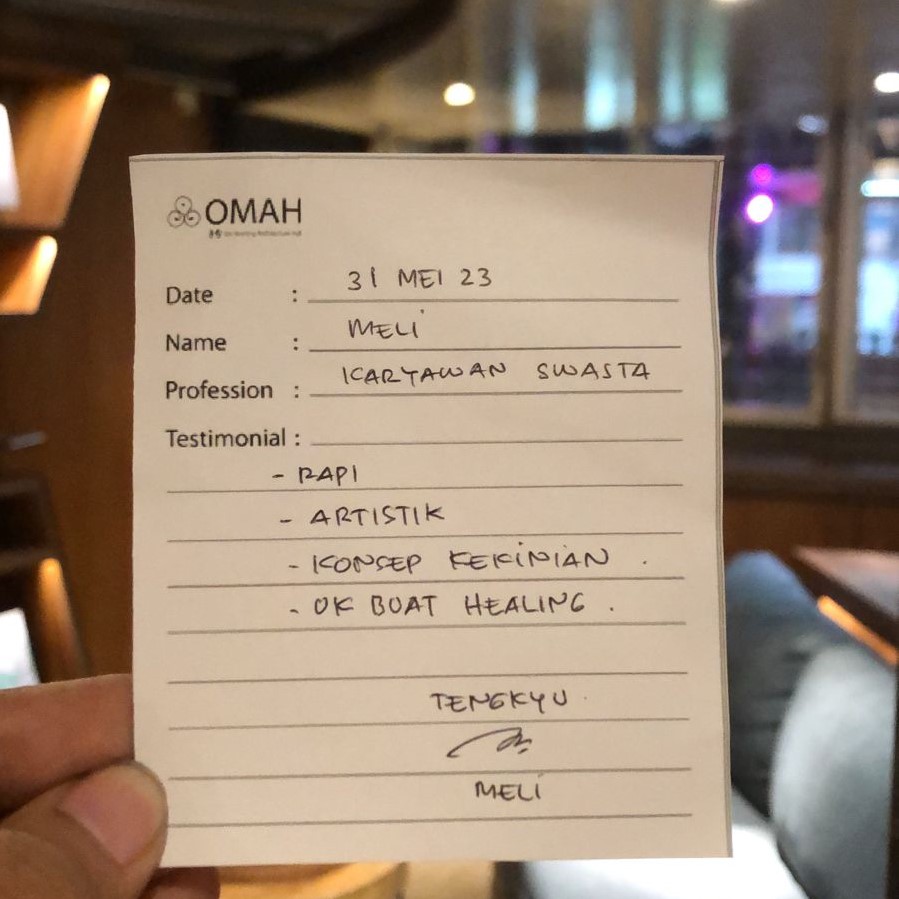 OMAH
Date : 31 MEI 23
Name : MELI
Profession : KARYAWAN SWASTA
Testimonial :
- RAPI
- ARTISTIK
- KONSEP KEKINIAN .
- OK BUAT HEALING .
TENGKYU
MELI